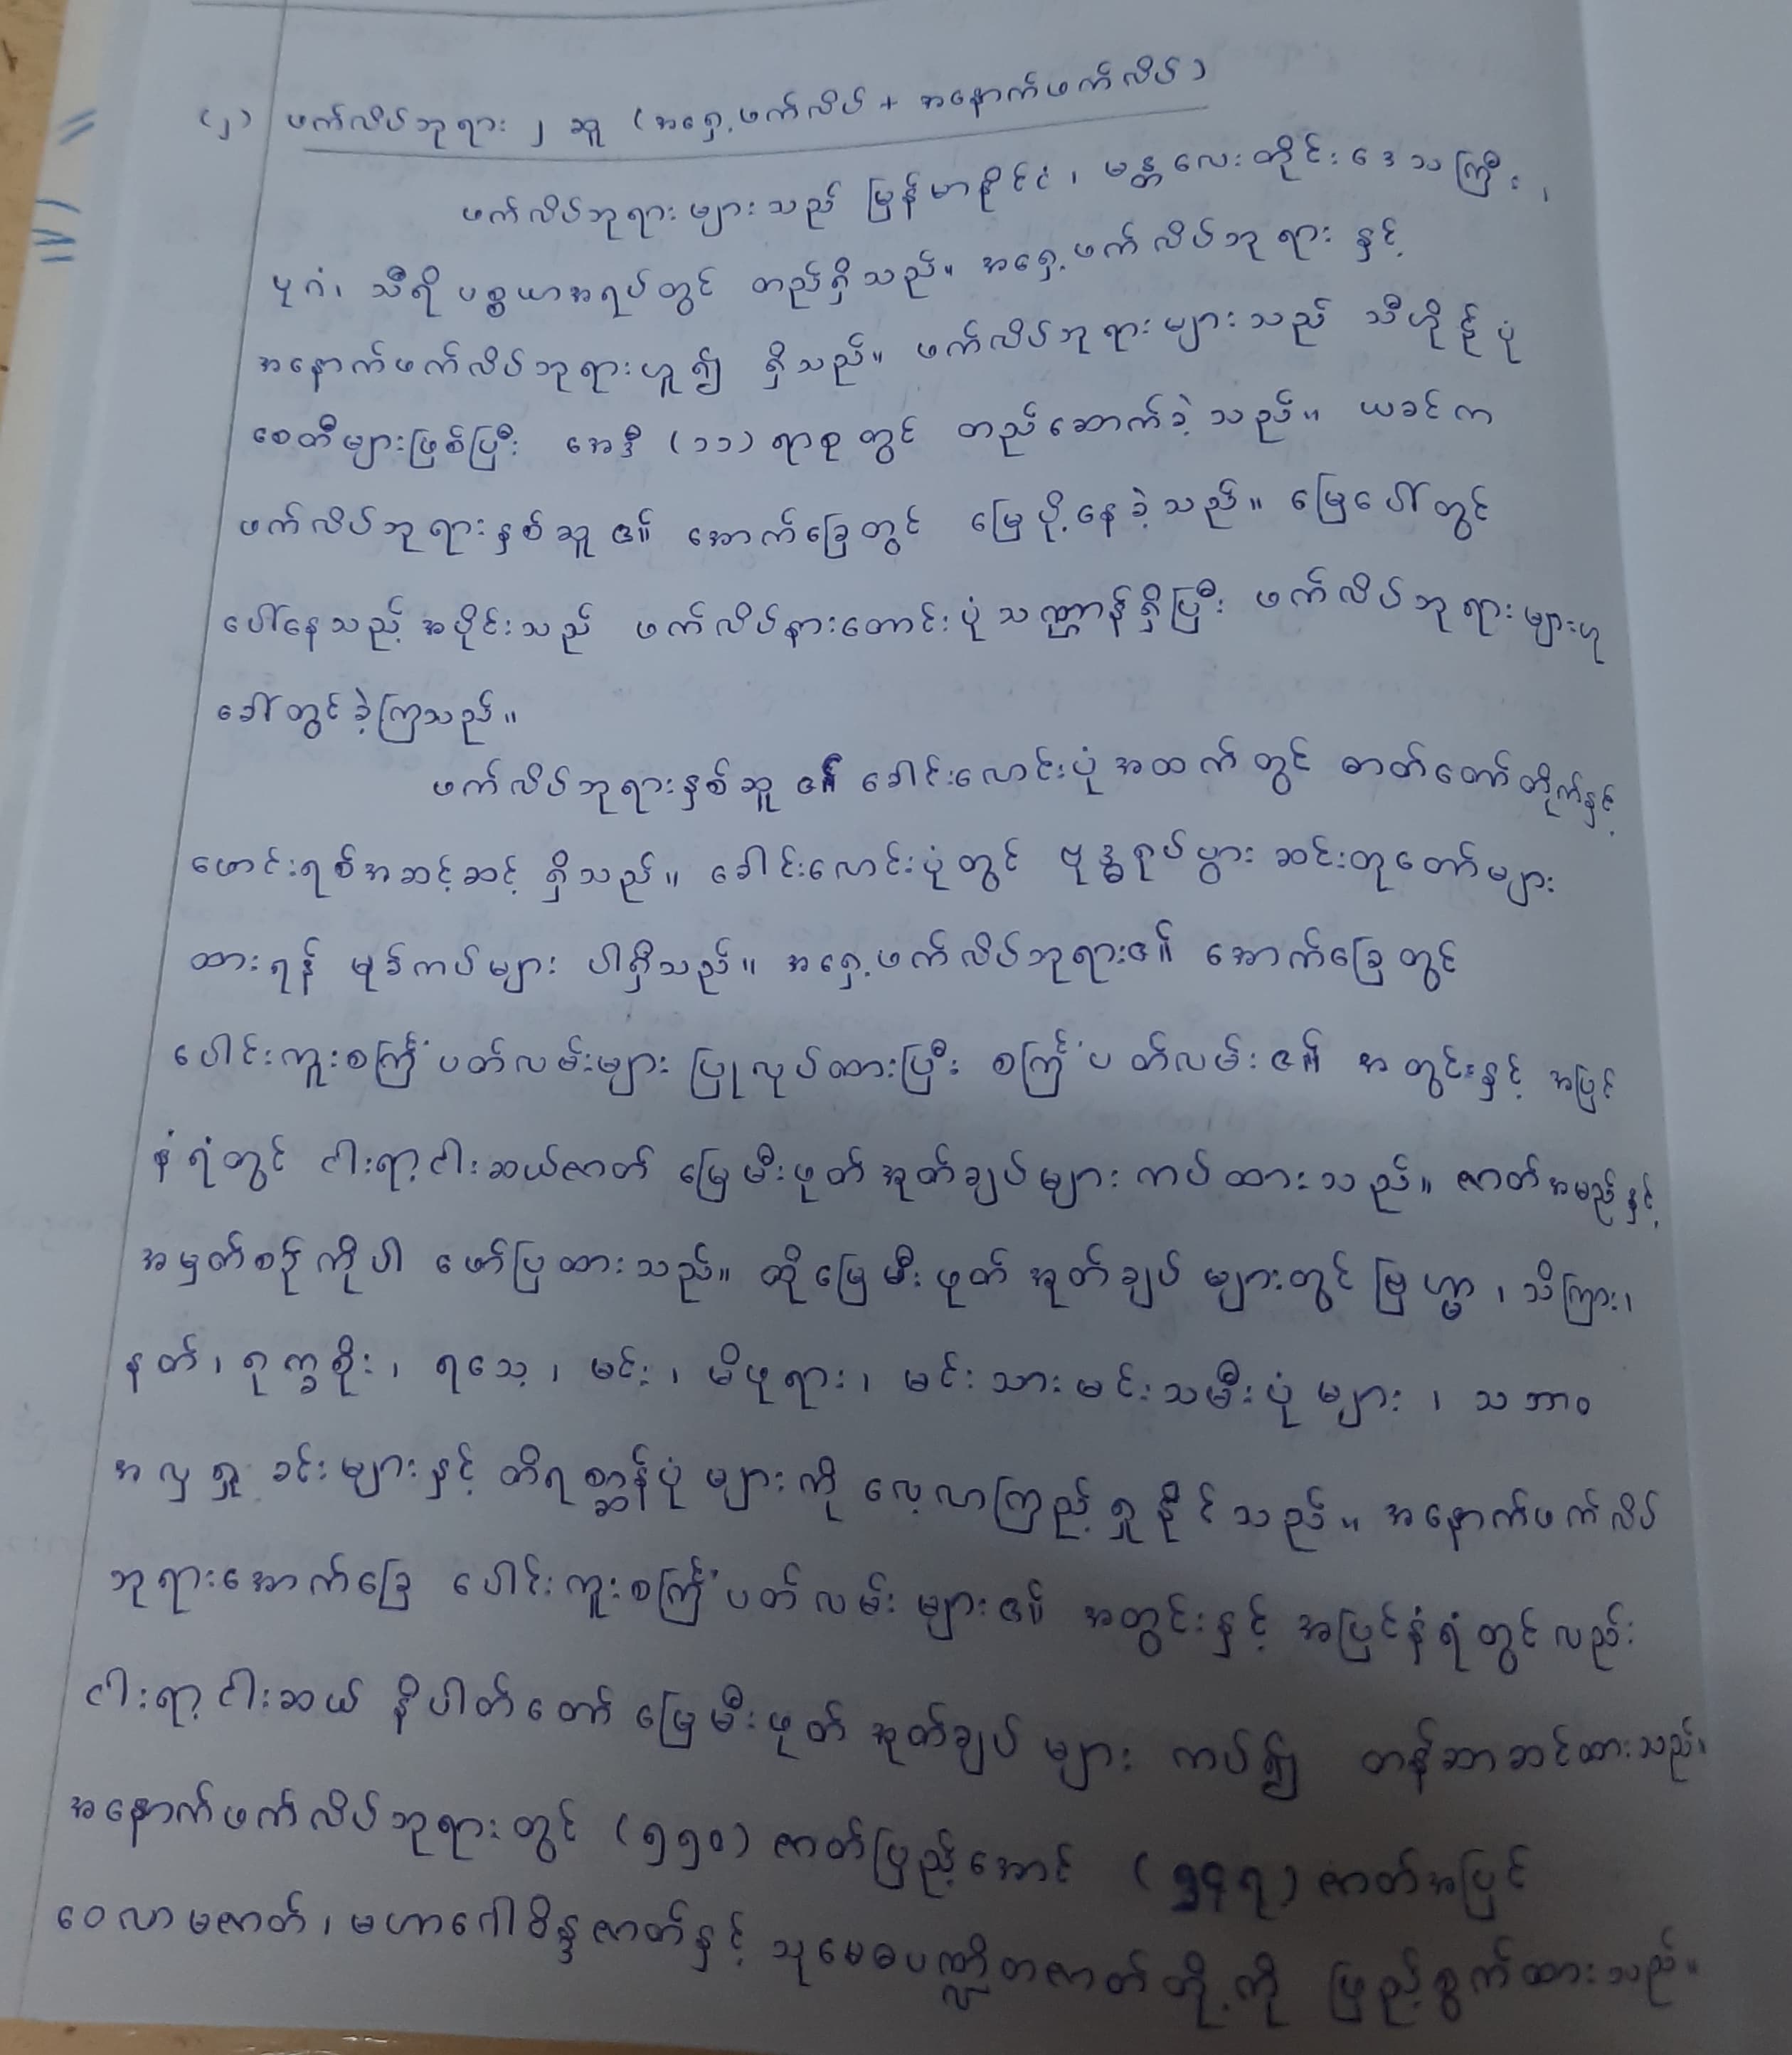 (၂) ဖက်လိပ်ဘုရား ၂ ဆူ (အရှေ့ဖက်လိပ် + အနောက်ဖက်လိပ်)
ဖက်လိပ်ဘုရားများသည် မြန်မာနိုင်ငံ၊ မန္တလေးတိုင်းဒေသကြီး၊
ပုဂံ၊ သီရိပစ္စယာအရပ်တွင် တည်ရှိသည်။ အရှေ့ဖက်လိပ်ဘုရား နှင့်
အနောက်ဖက်လိပ်ဘုရားဟူ၍ ရှိသည်။ ဖက်လိပ်ဘုရားများသည် သီဟိုဠ်ပုံ
စေတီများဖြစ်ပြီး အေဒီ (၁၁) ရာစုတွင် တည်ဆောက်ခဲ့သည်။ ယခင်က
ဖက်လိပ်ဘုရားနှစ်ဆူ၏ အောက်ခြေတွင် မြေပို့နေခဲ့သည်။ မြေပေါ်တွင်
ပေါ်နေသည့်အပိုင်းသည် ဖက်လိပ်နားတောင်းပုံသဏ္ဌာန်ရှိပြီး ဖက်လိပ်ဘုရားများဟု
ခေါ်တွင်ခဲ့ကြသည်။
ဖက်လိပ်ဘုရားနှစ်ဆူ၏ ခေါင်းလောင်းပုံအထက်တွင် ဓာတ်တော်တိုက်နှင့်
ဖောင်းရစ်အဆင့်ဆင့် ရှိသည်။ ခေါင်းလောင်းပုံတွင် ဗုဒ္ဓရုပ်ပွား ဆင်းတုတော်များ
ထားရန် မုခ်ကပ်များ ပါရှိသည်။ အရှေ့ဖက်လိပ်ဘုရား၏ အောက်ခြေတွင်
ပေါင်းကူးစင်္ကြံပတ်လမ်းများ ပြုလုပ်ထားပြီး စင်္ကြံပတ်လမ်း၏ အတွင်းနှင့် အပြင်
နံရံတွင် ငါးရာ့ငါးဆယ်ဇာတ် မြေမီးဖုတ်အုတ်ချပ်များ ကပ်ထားသည်။ ဇာတ်အမည်နှင့်
အမှတ်စဉ်ကိုပါ ဖော်ပြထားသည်။ ထိုမြေမီးဖုတ်အုတ်ချပ် များတွင် မြဟ္မာ၊ သိကြား၊
နတ်၊ ရုက္ခစိုး၊ ရသေ့၊ မင်း၊ မိဖုရား၊ မင်းသားမင်းသမီးပုံများ၊ သဘာဝ
အလှရှုခင်းများနှင့် တိရစ္ဆာန်ပုံများကို လေ့လာကြည့်ရှုနိုင်သည်။ အနောက်ဖက်လိပ်
ဘုရားအောက်ခြေ ပေါင်းကူးစင်္ကြံပတ်လမ်းများ၏ အတွင်းနှင့် အပြင်နံရံတွင်လည်း
ငါးရာ့ငါးဆယ် နိပါတ်တော် မြေမီးဖုတ်အုတ်ချပ်များ ကပ်၍ တန်ဆာဆင်ထားသည်။
အနောက်ဖက်လိပ်ဘုရားတွင် (၅၅၀) ဇာတ်ပြည့်အောင် (၅၄၇) ဇာတ်အပြင်
ဝေလာမဇာတ်၊ မဟာဂေါဝိန္ဒဇာတ်နှင့် သုမေဓပဏ္ဍိတဇာတ်တို့ကို ဖြည့်စွက်ထားသည်။